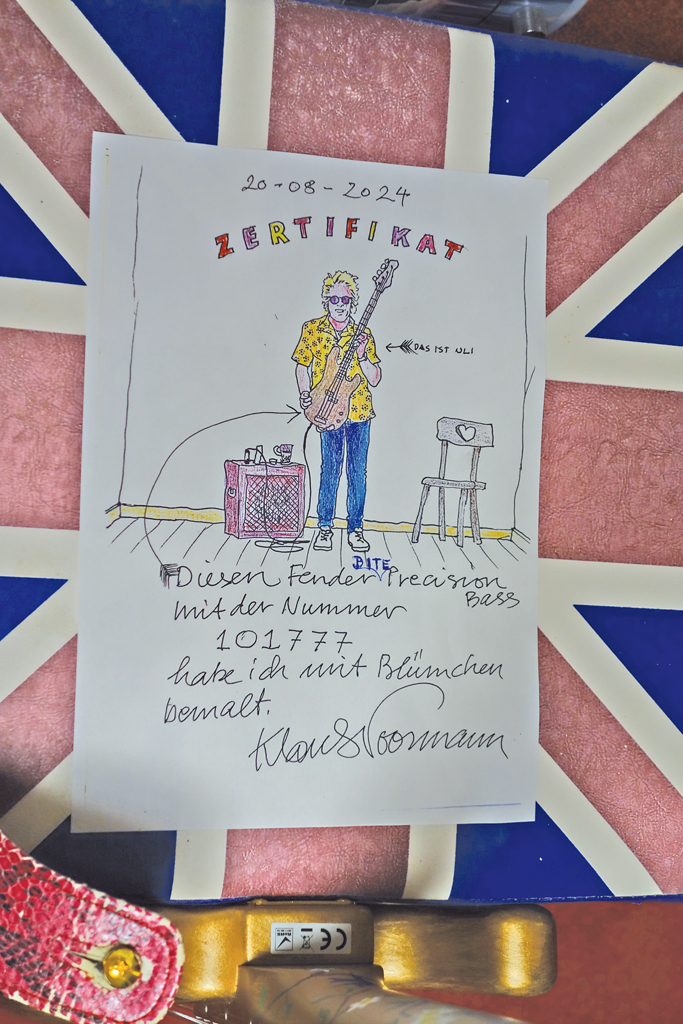 20-08-2024
ZERTIFIKAT
DAS IST ULI
BITE
Diesen Fender Precision
Bass
mit der Nummer
101777
habe ich mit Blümchen
bemalt.
Klaus Voormann
CE